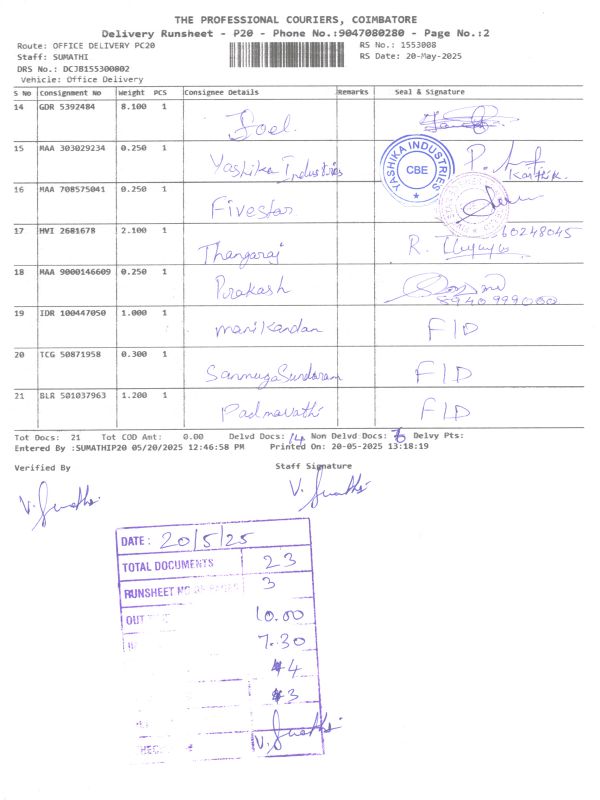 THE PROFESSIONAL COURIERS, COIMBATORE
Delivery Runsheet - P20 - Phone No.:9047080280 - Page No.:2
Route: OFFICE DELIVERY PC20 RS No.: 1553008
Staff: SUMATHI RS Date: 20-May-2025
DRS No.: DCJB155300802
Vehicle: Office Delivery
S No Consignment No Weight PCS Consignee Details Remarks Seal & Signature
14 GDR 5392484 8.100 1 Joel
15 MAA 303029234 0.250 1 Yashika Industries YASHIKA INDUSTRIES CBE Karthik
16 MAA 708575041 0.250 1 Fivestar
17 HVI 2681678 2.100 1 Thangaraj R. 60248045
18 MAA 9000146609 0.250 1 Prakash 8940999000
19 IDR 100447050 1.000 1 Manikandan F/D
20 TCG 50871958 0.300 1 SanmugaSundaram F/D
21 BLR 501037963 1.200 1 Padmavathi F/D
Tot Docs: 21 Tot COD Amt: 0.00 Delvd Docs: 14 Non Delvd Docs: Delvy Pts:
Entered By :SUMATHIP20 05/20/2025 12:46:58 PM Printed On: 20-05-2025 13:18:19
Verified By Staff Signature
V. Sumathi V. Sumathi
DATE: 20/5/25
TOTAL DOCUMENTS 23
RUNSHEET NO 3
OUT 10.00
7.30
4
3
V. Sumathi